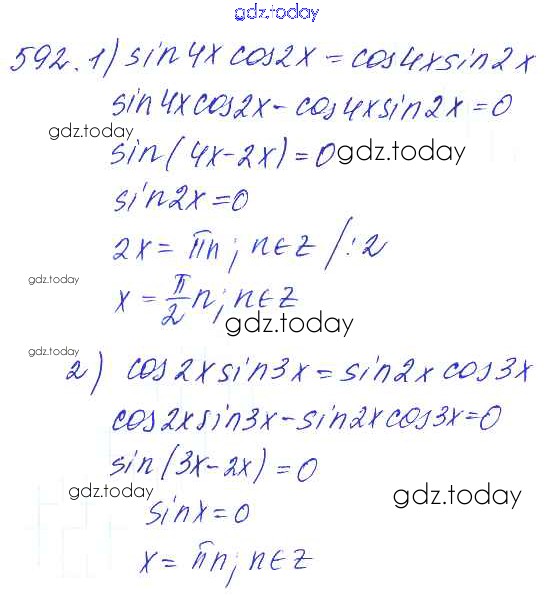 gdz.today
592. 1) sin4x cos2x = cos4x sin2x
sin4x cos2x - cos4x sin2x = 0
gdz.today
sin(4x-2x) = 0 gdz.today
sin2x = 0
2x = πn; n∈Z /:2
gdz.today
x = π/2 n; n∈Z
gdz.today
gdz.today
2) cos2x sin3x = sin2x cos3x
cos2x sin3x - sin2x cos3x = 0
sin(3x-2x) = 0
gdz.today gdz.today
sinx = 0
x = πn; n∈Z